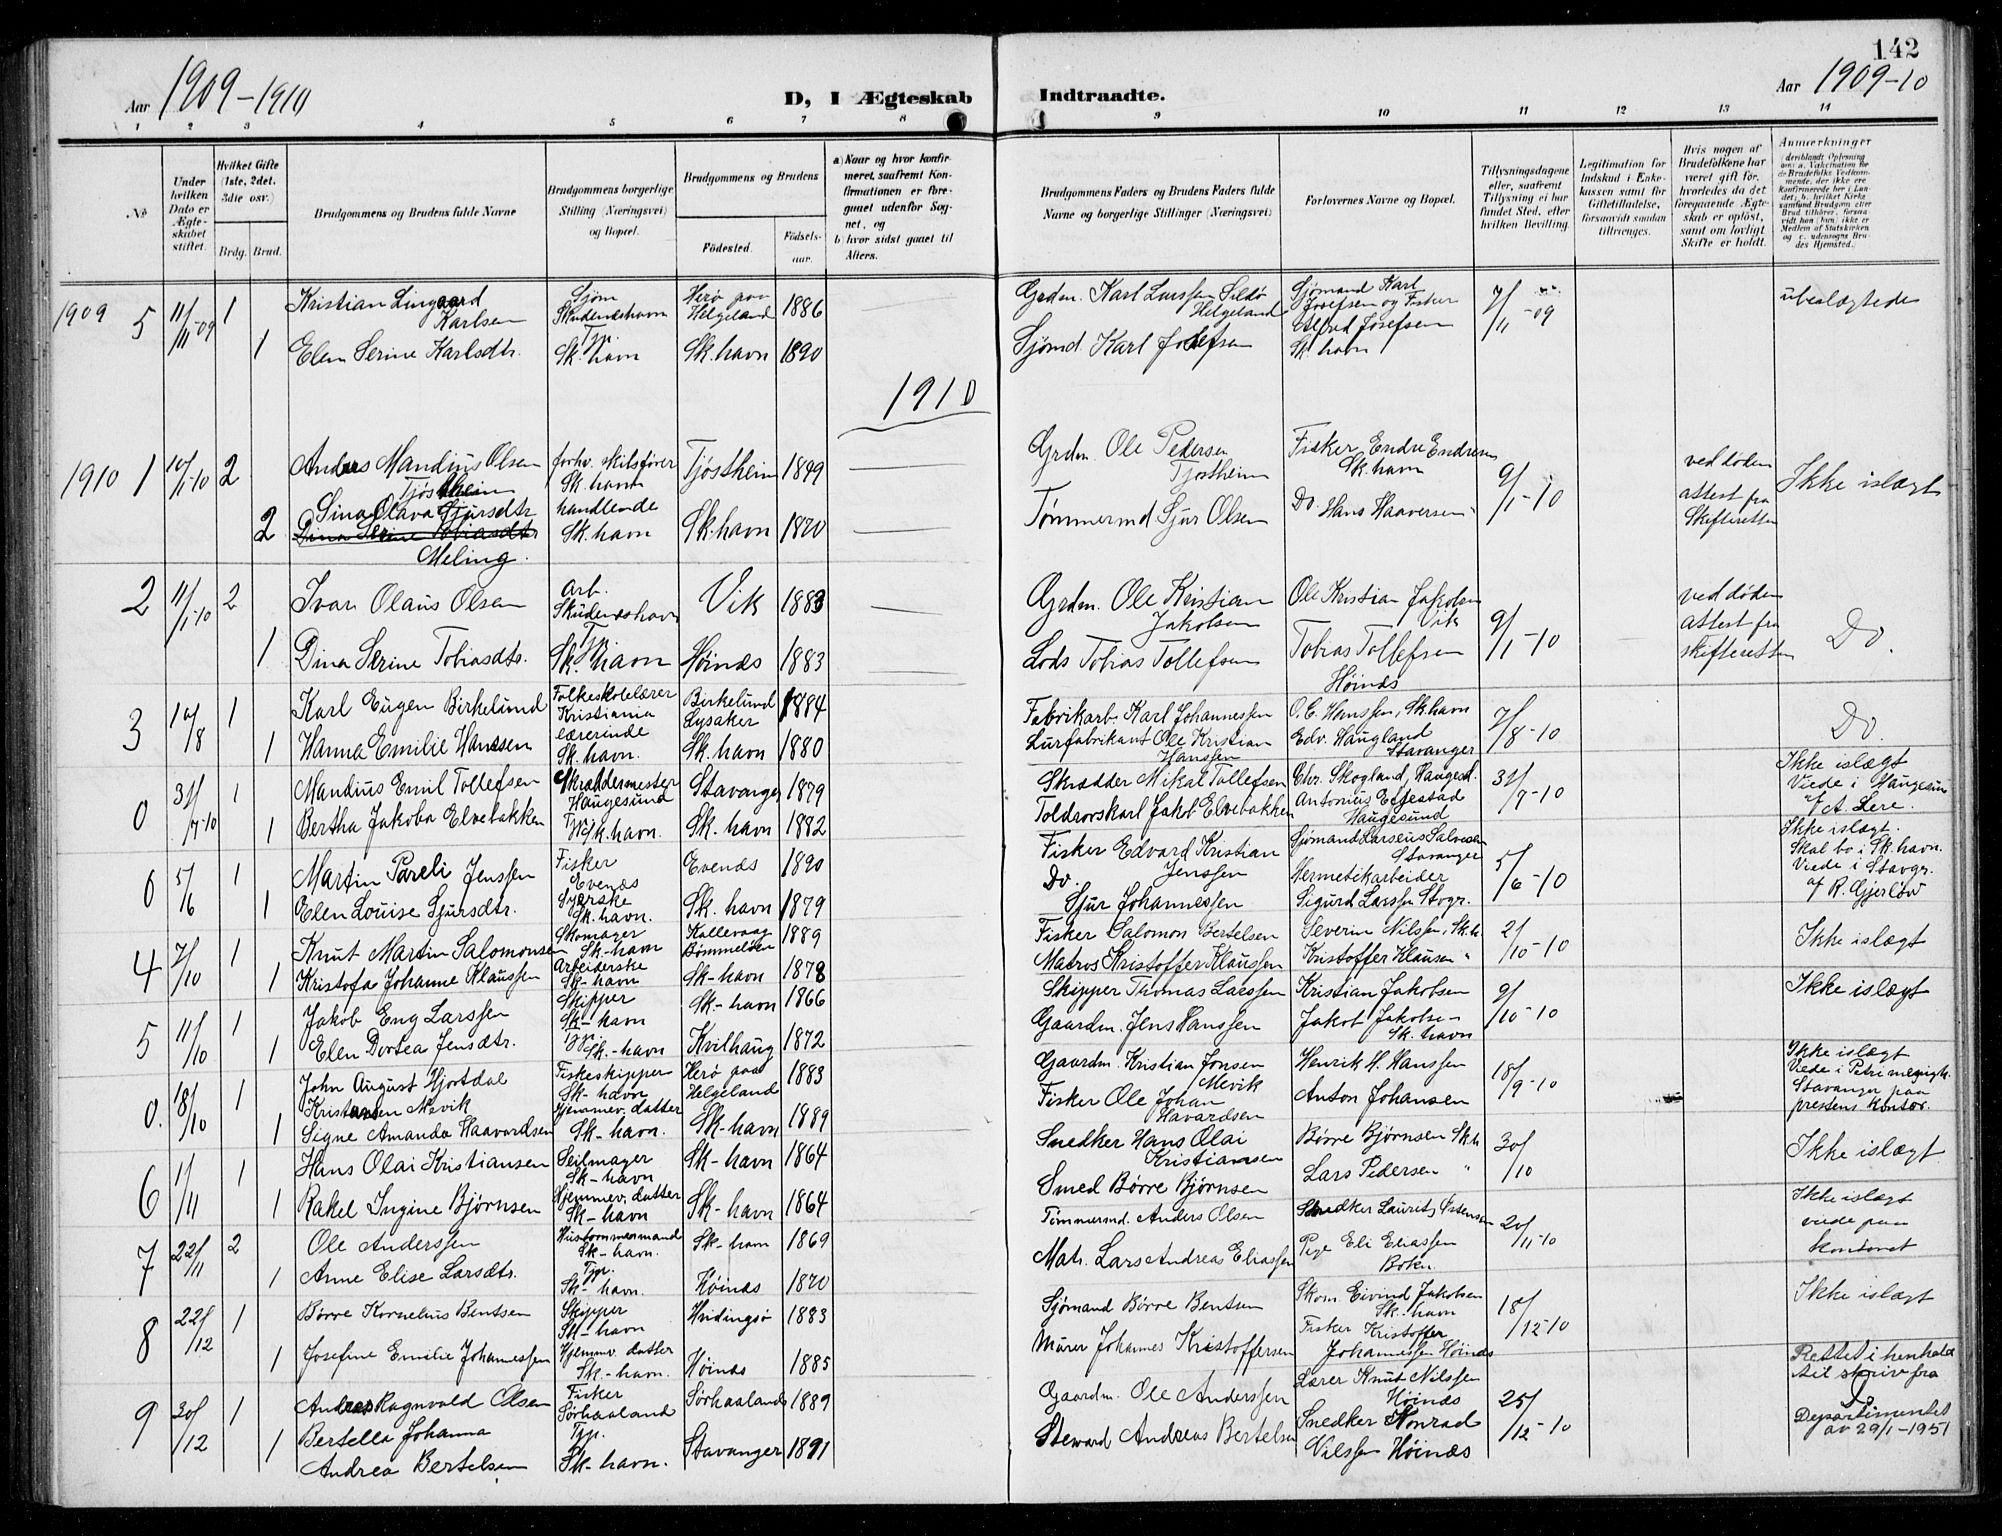 142
Aar 1909-1910
D, I Ægteskab Indtraadte.
Aar 1909-10
1 2 3 4 5 6 7 8 9 10 11 12 13 14
No
Under hvilken Dato er Ægteskabet stiftet.
Hvilket Gifte (1ste, 2det, 3die osv.)
Brdg. Brud.
Brudgommens og Brudens fulde Navne
Brudgommens borgerlige Stilling (Næringsvei) og Bopæl.
Brudgommens og Brudens
Fødested. Fødselsaar.
a) Naar og hvor konfirmeret, saafremt Konfirmationen er foregaaet udenfor Sognet, og
b) hvor sidst gaaet til Alters.
Brudgommens Faders og Brudens Faders fulde Navne og borgerlige Stillinger (Næringsvei)
Forlovernes Navne og Bopæl.
Tillysningsdagene eller, saafremt Tillysning ei har fundet Sted, efter hvilken Bevilling.
Legitimation for Indskud i Enkekassen samt for Giftetilladelse, forsaavidt saadan tiltrænges.
Hvis nogen af Brudefolkene har været gift før, hvorledes da det foregaaende Ægteskab er opløst, samt om lovligt Skifte er holdt.
Anmærkninger
1909 5 11/11-09 1 Kristian Lingaard Karlsen Sjøm Skudeneshavn Herø paa Helgeland 1886 Grdm. Karl Larssen Sildø Helgeland Sjømand Karl Josefsen og Fisker 7/11-09 ubeslægtede
1 Elen Serine Karlsdtr. Tjp. Sk. havn Sk. havn 1890 Sjømd. Karl Josefsen Alfred Josefsen Sk. havn
1910
1910 1 10/1-10 2 Anders Mandius Olsen Tjøstheim forhv. skibsfører Sk. havn Tjøstheim 1849 Grdm. Ole Pedersen Tjøstheim Fisker Endre Endresen Sk. havn 9/1-10 ved døden attest fra Skifteretten Ikke i slægt
2 Sina Olava Sjursdtr Dina Serine Tobiasdtr Meling. handlende Sk. havn Sk. havn 1870 Tømmermd Sjur Olsen Do. Hans Haaversen
2 11/1-10 2 Ivar Olaus Olsen Arb. Skudeneshavn Vik 1883 Grdm. Ole Kristian Jakobsen Ole Kristian Jakobsen Vik 9/1-10 ved døden attest fra skifteretten Do.
1 Dina Serine Tobiasdtr. Tjp. Sk. havn Høines 1883 Lods Tobias Tollefsen Tobias Tollefsen Høines
3 10/8 1 Karl Eugen Birkelund Folkeskolelærer Kristiania Birkelund Lysaker 1884 Fabrikarb. Karl Johannessen O. C. Hanssen, Sk. havn 7/8-10 Do.
1 Hanna Emilie Hanssen lærerinde Sk. havn. Sk. havn 1880 Lurfabrikant Ole Kristian Hanssen Edv. Haugland Stavanger
0 31/7-10 1 Mandius Emil Tollefsen Skræddermester Haugesund Stavanger 1879 Skrædder Mikal Tollefsen Chr. Skogland, Haugesd. 31/7-10 Ikke i slægt Viede i Haugesun af A. Lere.
1 Bertha Jakoba Elvebakken Tjp. Sk. havn. Sk. havn 1882 Toldrorskarl Jakob Elvebakken Antonius Effestad Haugesund
0 5/6 1 Martin Pareli Jenssen Fisker Evenes Evenes 1890 Fisker Edvard Kristian Jenssen Sjømand Larseus Salvesen Stavanger 5/6-10 Ikke i slægt. Skal bo i Sk. havn. Viede i Stavgr. af R. Gjerløw
1 Elen Louise Sjursdtr. Syerske Sk. havn. Sk. havn 1879 Do. Sjur Johannessen Hermetikarbeider Sigurd Larssen Stvgr.
4 7/10 1 Knut Martin Salomonsen Skomager Sk-havn Kallevaag Bømmeløen 1889 Fisker Salomon Bertelsen Severin Nilssen, Sk. h. 2/10-10 Ikke i slægt
1 Kristofa Johanne Klaussen Arbeiderske Sk-havn Sk-havn 1878 Matros Kristoffer Klaussen Kristoffer Klausen "
5 11/10 1 Jakob Eng Larssen Skipper Sk-havn Sk-havn 1866 Skipper Thomas Larssen Kristian Jakobsen 9/10-10 Ikke i slægt
1 Elen Dortea Jensdtr. Tjp. Sk.-havn Kvilhaug 1872 Gaardm. Jens Hanssen Jakob Jakobse- Sk. havn
0. 18/10 1 John August Hjortdal Kristansen Mevik Fiskeskipper Sk-havn Herø paa Helgeland 1883 Gaardm. Kristian Jonsen Mevik Henrik H. Hanssen 18/9-10 Ikke i slægt Viede i Petri menigh. Stavanger paa prestens kontor.
1 Signe Amanda Haavardsen Hjemmev. datter Sk-havn. Sk-havn 1889 Fisker Ole Johan Havardsen Anton Johansen
6 1/11 1 Hans Olai Kristiansen Seilmager Sk-havn Sk-havn 1864 Snedker Hans Olai Kristiansen Børre Bjørnsen Sk. h. 30/10 Ikke i slægt
1 Rakel Ingine Bjørnsen Hjemmev. datter Sk-havn Sk-havn 1864 Smed Børre Bjørnsen Lars Pedersen "
7 22/11 2 Ole Anderssen Hustømmermand Sk-havn. Sk-havn 1869 Tømmermd. Anders Olsen Snedker Laurits Østensen 20/11-10 Ikke i slægt viede paa kontoret
1 Anne Elise Larsdtr. Tjp. Sk-havn. Høines 1870 Matr. Lars Andreas Eliassen Eli Eliassen Bokn.
8 22/12 1 Børre Kornelius Bentsen Skipper Sk-havn Hvidingsø 1883 Sjømand Børre Bentsen Skom. Eivind Jakobsen Sk. havn 18/12-10 Ikke i slægt
1 Josefine Emilie Johannessen Hjemmv. datter Sk.-havn. Høines 1885 Murer Johannes Kristoffersen Fisker Kristoffer Johannessen Høines
9 30/12 1 Andreas Ragnvald Olsen Fisker Sørhaaland Sørhaaland 1889 Gaardm. Ole Anderssen Lærer Knut Nilssen Høines 25/12-10 Rettet i henhold til skriv fra Departementet av 29/1-1951
1 Bertella Johanna Andrea Bertelsen Tjp. Sk-havn. Stavanger 1891 Steward Andreas Bertelsen Snedker Konrad Nilssen Høines